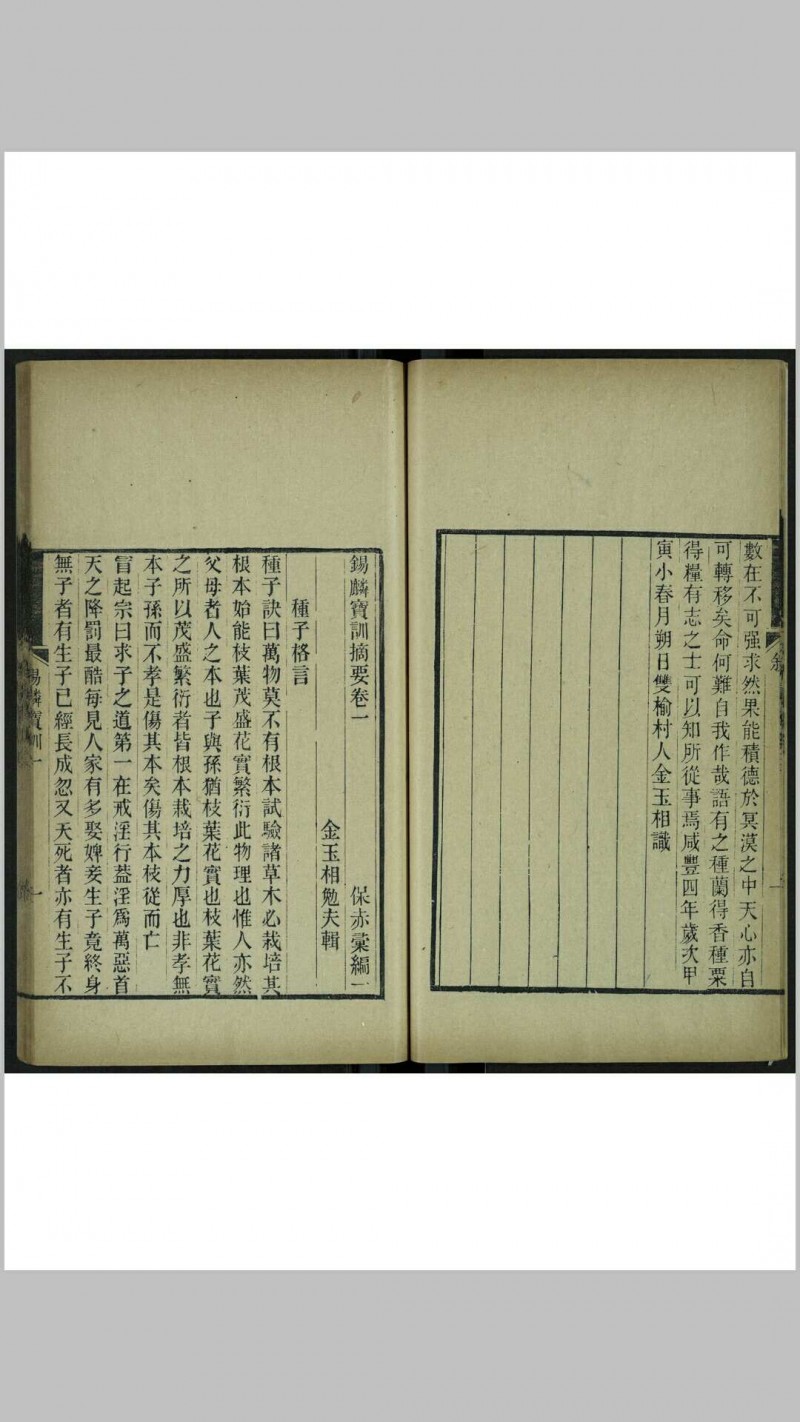 數在不可强求然果能積德於冥漠之中天心亦自
可轉移矣命何難自我作哉語有之種蘭得香種粟
得糧有志之士可以知所從事焉咸豐四年歲次甲
寅小春月朔日雙榆村人金玉相識
叙
一
錫麟寶訓摘要卷一 保赤彙編一
金玉相勉夫輯
種子格言
種子訣曰萬物莫不有根本試驗諸草木必栽培其
根本始能枝葉茂盛花實繁衍此物理也惟人亦然
父母者人之本也子與孫猶枝葉花實也枝葉花實
之所以茂盛繁衍者皆根本栽培之力厚也非孝無
本子孫而不孝是傷其本矣傷其本枝從而亡
冒起宗曰求子之道第一在戒淫行葢淫爲萬惡首
天之降罰最酷每見人家有多娶婢妾生子竟終身
無子者有生子已經長成忽又夭死者亦有生子不
錫麟寶訓一
一